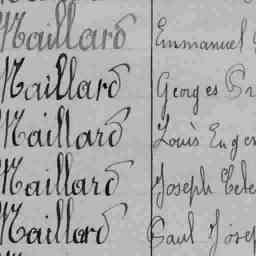 Maillard Emmanuel
Maillard Georges
Maillard Louis Eugen
Maillard Joseph
Maillard Paul Josep